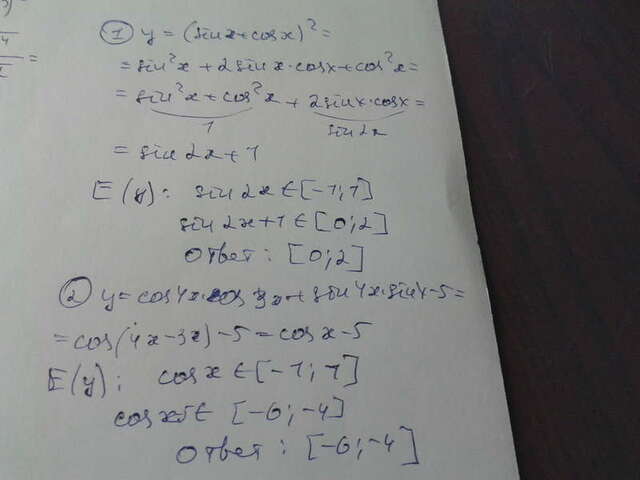 3)
4
=
① y = (sinx+cosx)²=
= sin²x + 2sinx·cosx+cos²x=
= sin²x+cos²x + 2sinx·cosx=
1 sin 2x
= sin 2x+1
E(y): sin 2x ∈ [-1;1]
sin 2x+1 ∈ [0;2]
Ответ: [0;2]
② y= cos4x·cos 3x+sin4x·sin4-5=
= cos(4x-3x)-5=cosx-5
E(y): cosx ∈ [-1;1]
cosx5∈ [-6;-4]
Ответ: [-6;-4]